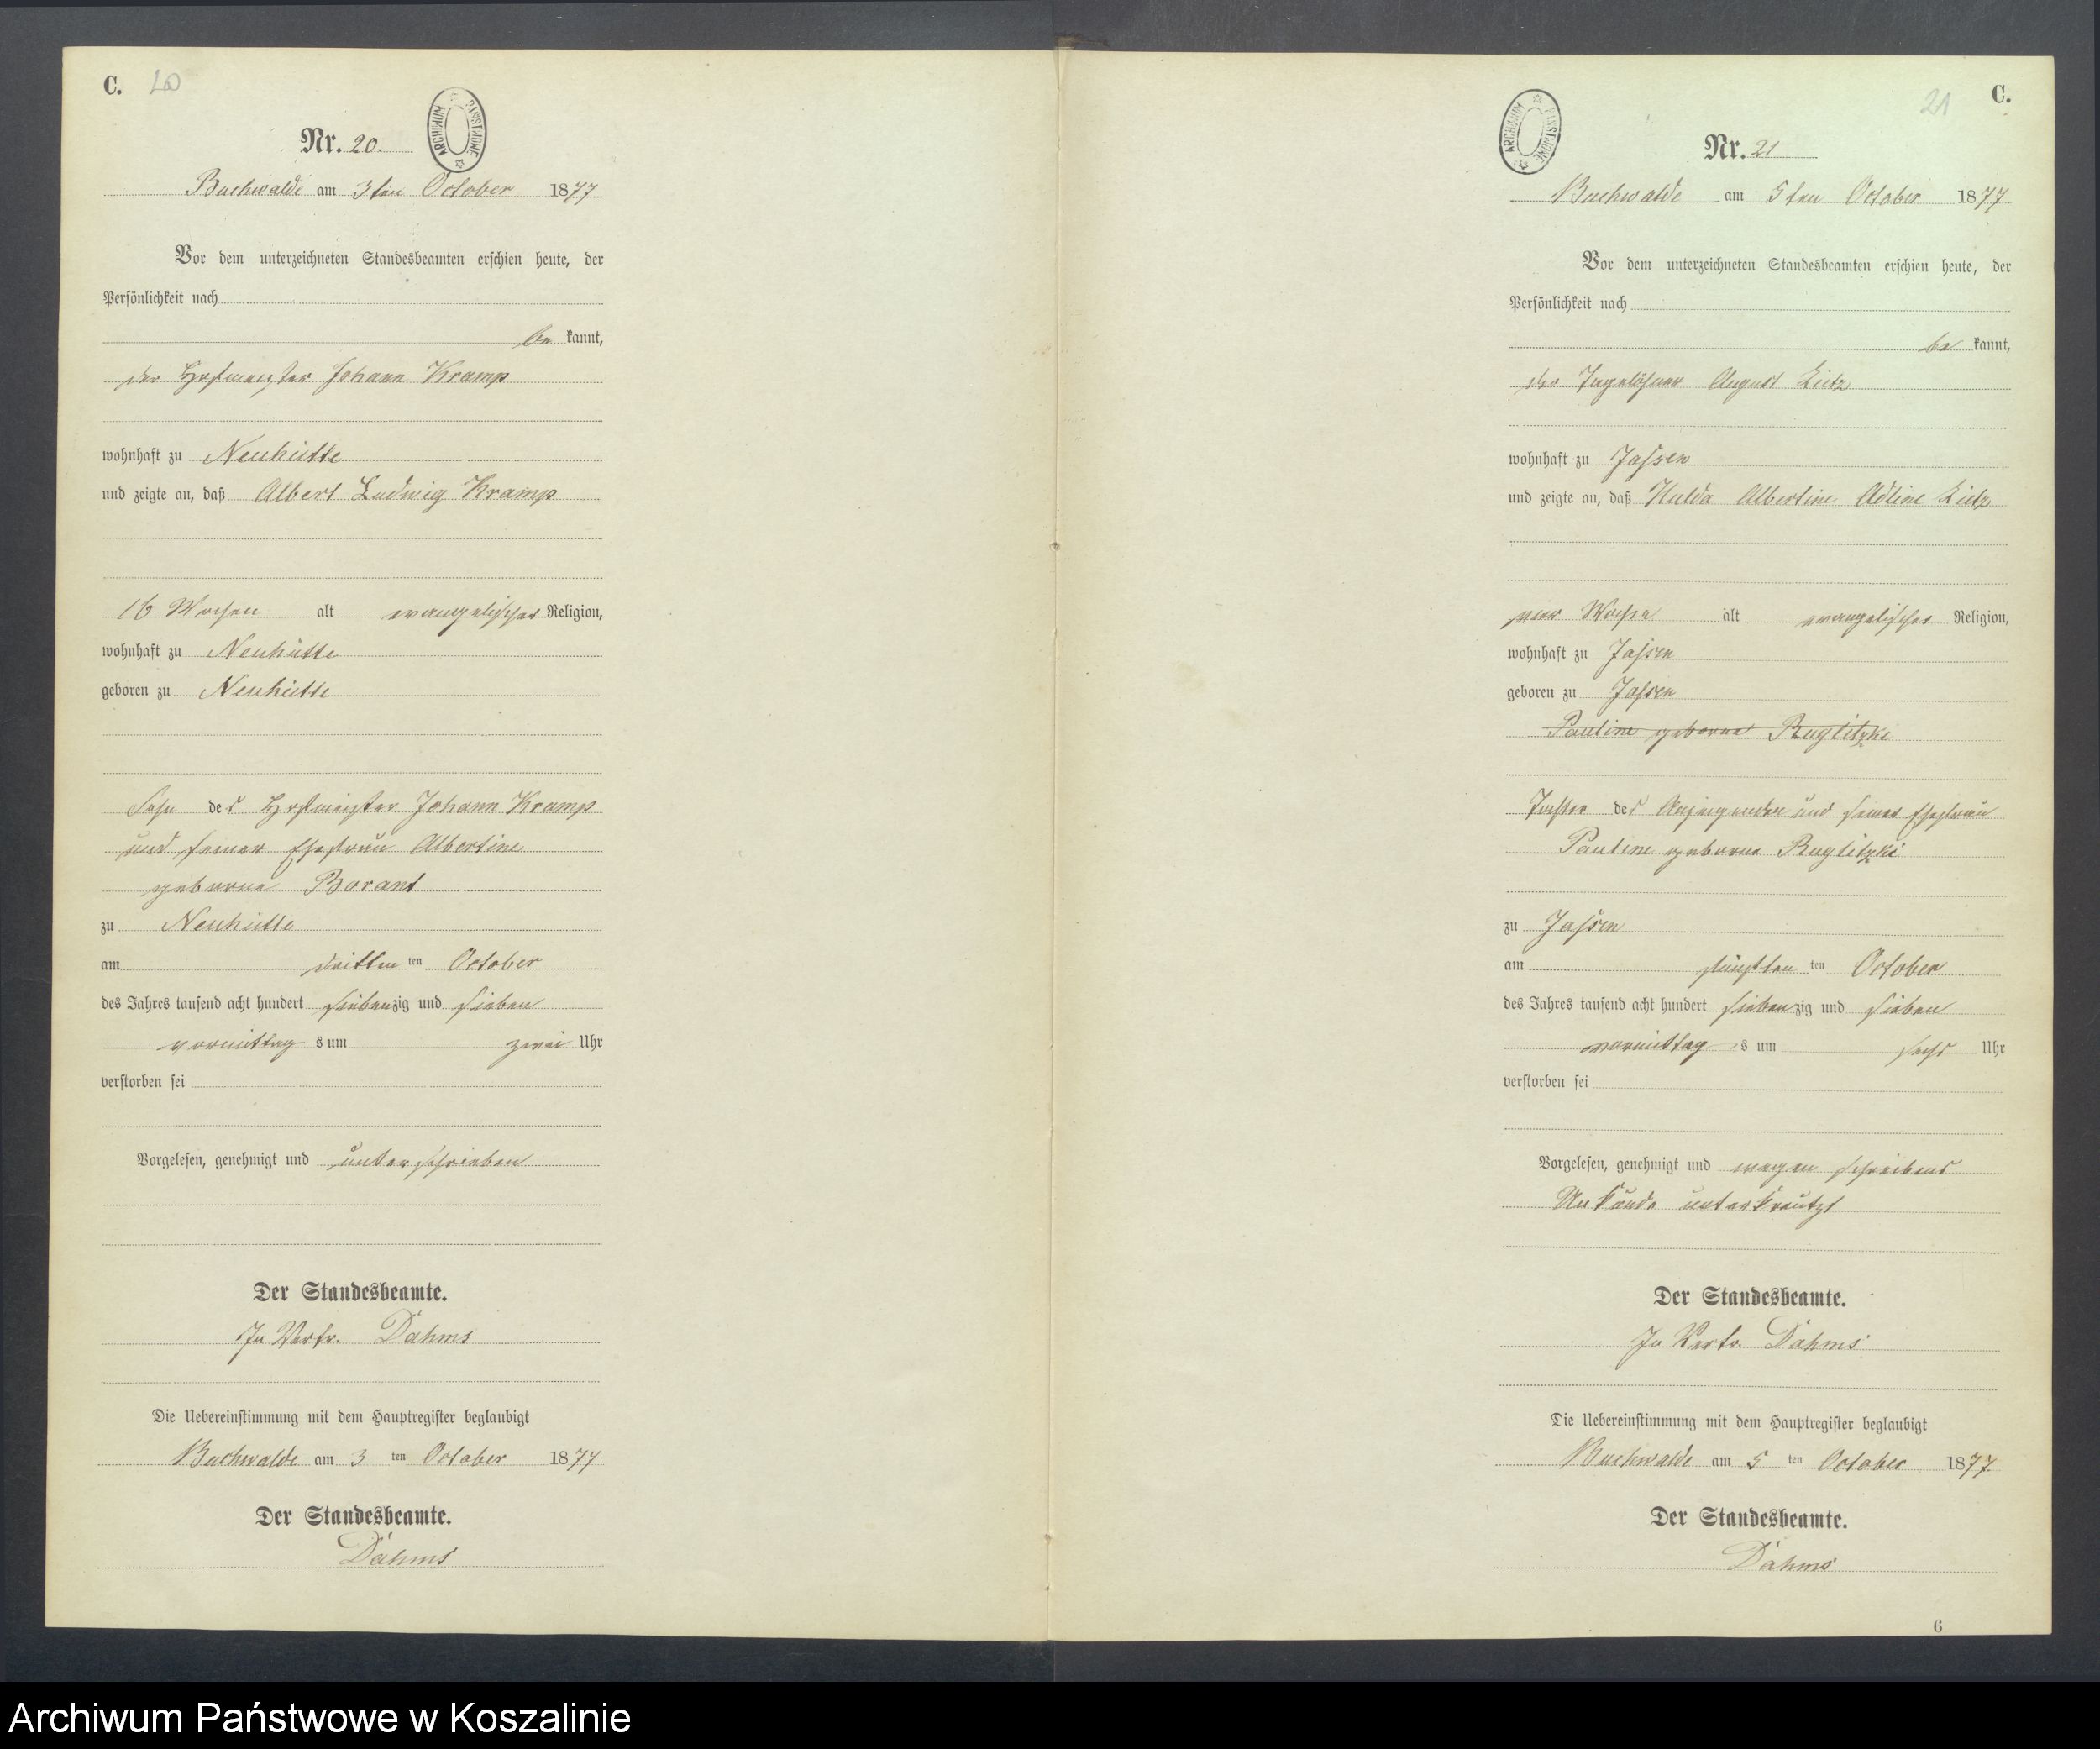 C. 20
Nr. 20.
ARCHIWUM PAŃSTWOWE
Buchwalde am 3ten October 1877
Vor dem unterzeichneten Standesbeamten erschien heute, der
Persönlichkeit nach
be kannt,
der Hofmeister Johann Kramp
wohnhaft zu Neuhütte
und zeigte an, daß Albert Ludwig Kramp
16 Wochen alt evangelischer Religion,
wohnhaft zu Neuhütte
geboren zu Neuhütte
Sohn des Hofmeister Johann Kramp
und seiner Ehefrau Albertine
geborne Borant
zu Neuhütte
am dritten ten October
des Jahres tausend acht hundert siebenzig und sieben
vormittag s um zwei Uhr
verstorben sei
Vorgelesen, genehmigt und unterschrieben
Der Standesbeamte.
In Vertr. Dahms
Die Uebereinstimmung mit dem Hauptregister beglaubigt
Buchwalde am 3 ten October 1877
Der Standesbeamte.
Dahms
21 C.
Nr. 21
ARCHIWUM PAŃSTWOWE
Buchwalde am 5ten October 1877
Vor dem unterzeichneten Standesbeamten erschien heute, der
Persönlichkeit nach
be kannt,
der Tagelöhner August Lietz
wohnhaft zu Jassen
und zeigte an, daß Hulda Albertine Adline Lietz
vier Woche alt evangelischer Religion,
wohnhaft zu Jassen
geboren zu Jassen
Pauline geborne Ruglitzki
Tochter des Anzeigenden und seiner Ehefrau
Pauline geborne Ruglitzki
zu Jassen
am fünften ten October
des Jahres tausend acht hundert siebenzig und sieben
vormittag s um sechs Uhr
verstorben sei
Vorgelesen, genehmigt und wegen schreibens
Unkunde unterkreutzt
Der Standesbeamte.
In Vertr. Dahms
Die Uebereinstimmung mit dem Hauptregister beglaubigt
Buchwalde am 5 ten October 1877.
Der Standesbeamte.
Dahms
6
Archiwum Państwowe w Koszalinie